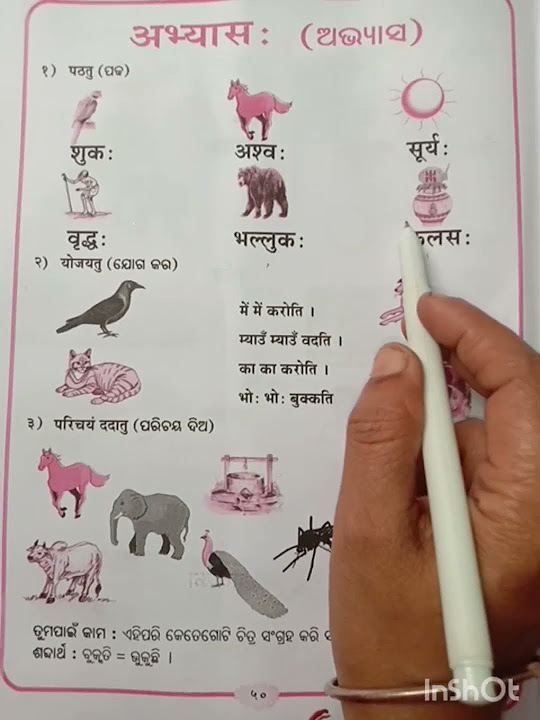 अभ्यासः (ଅଭ୍ୟାସ)
१) पठतु (ପଢ଼)
शुकः अश्वः सूर्यः
वृद्धः भल्लुकः कलसः
२) योजयतु (ଯୋଗ କର)
में में करोति ।
म्याउँ म्याउँ वदति ।
का का करोति ।
भोः भोः बुक्कति
३) परिचयं ददातु (ପରିଚୟ ଦିଅ)
ତୁମପାଇଁ କାମ : ଏହିପରି କେତେଗୋଟି ଚିତ୍ର ସଂଗ୍ରହ କରି
ଶବ୍ଦାର୍ଥ : ବୁକ୍କତି = ଭୁକୁଛି ।
୫୦
InShOt